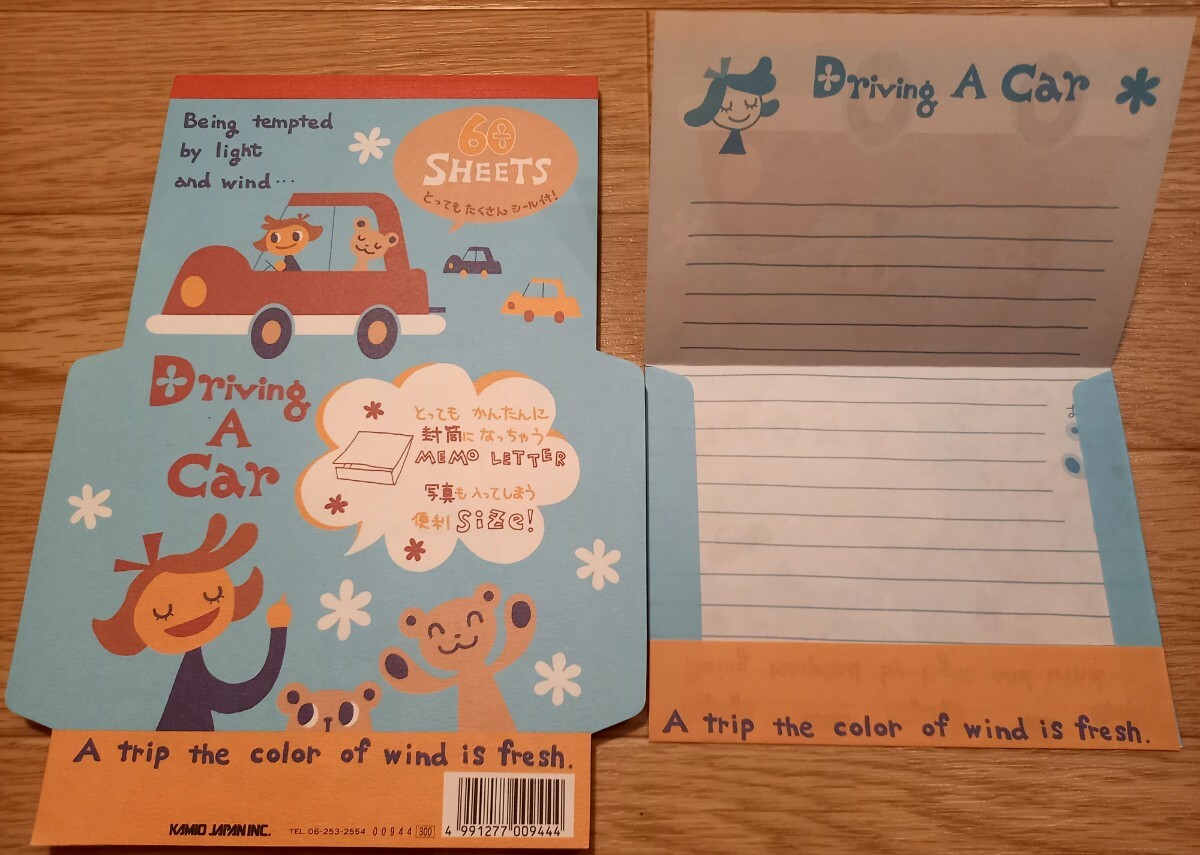 Being tempted
by light
and wind...
60
SHEETS
とっても たくさん シール付!
Driving
A
Car
とっても かんたんに
封筒に なっちゃう
MEMO LETTER
写真も 入ってしまう
便利 SiZe!
A trip the color of wind is fresh.
KAMIO JAPAN INC. TEL. 06-253-2554 00944 300
4 991277 009444
Driving A Car
To
A trip the color of wind is fresh.